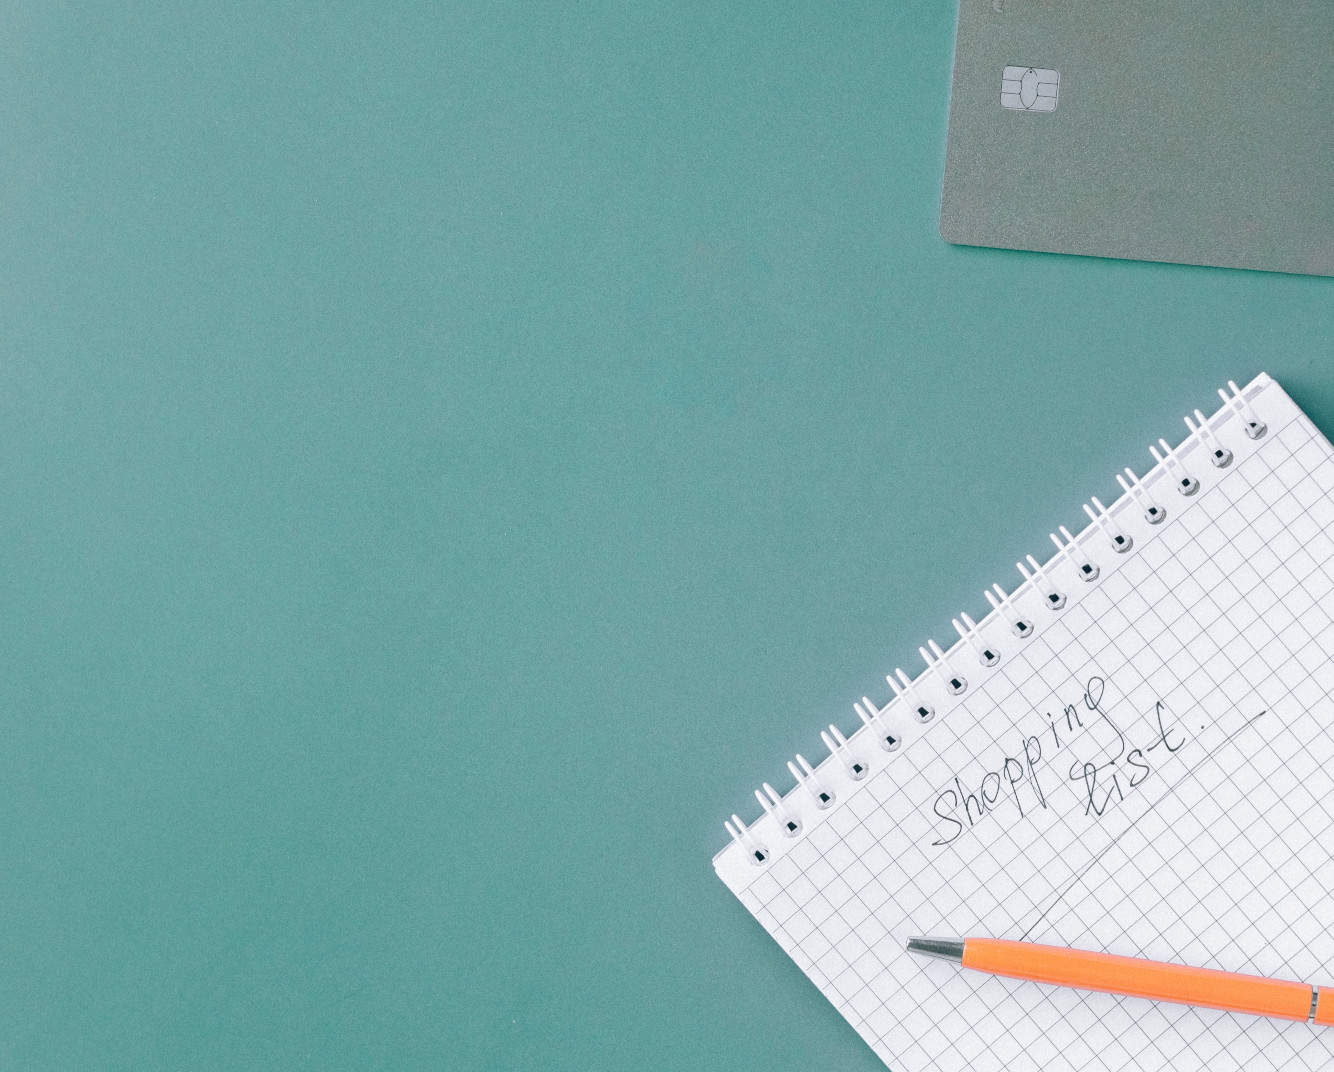 Shopping
list.